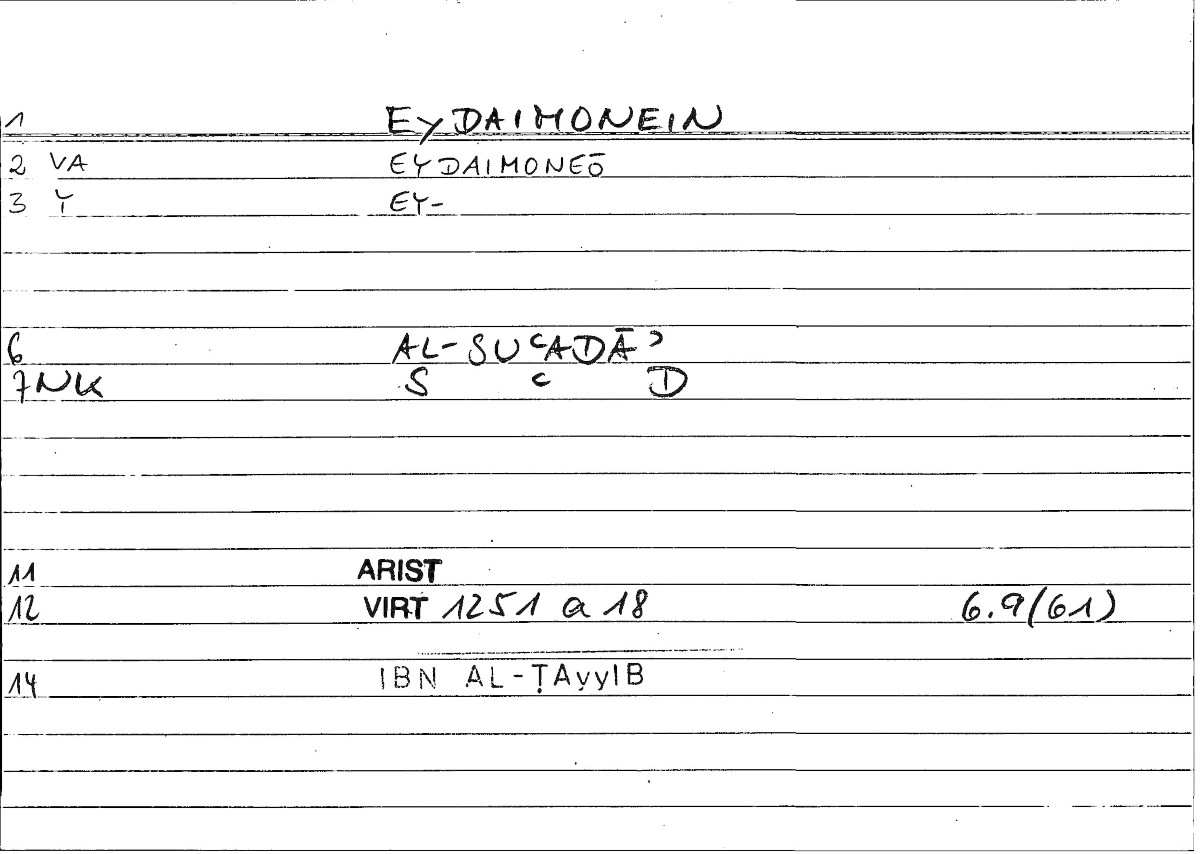 1 EyDAIMONEIN
2 VA EYDAIMONEŌ
3 Y EY-
6 AL-SUʿADĀʾ
7 NK S ʿ D
11 ARIST
12 VIRT 1251 a 18 6.9(61)
14 IBN AL-ṬAyyIB